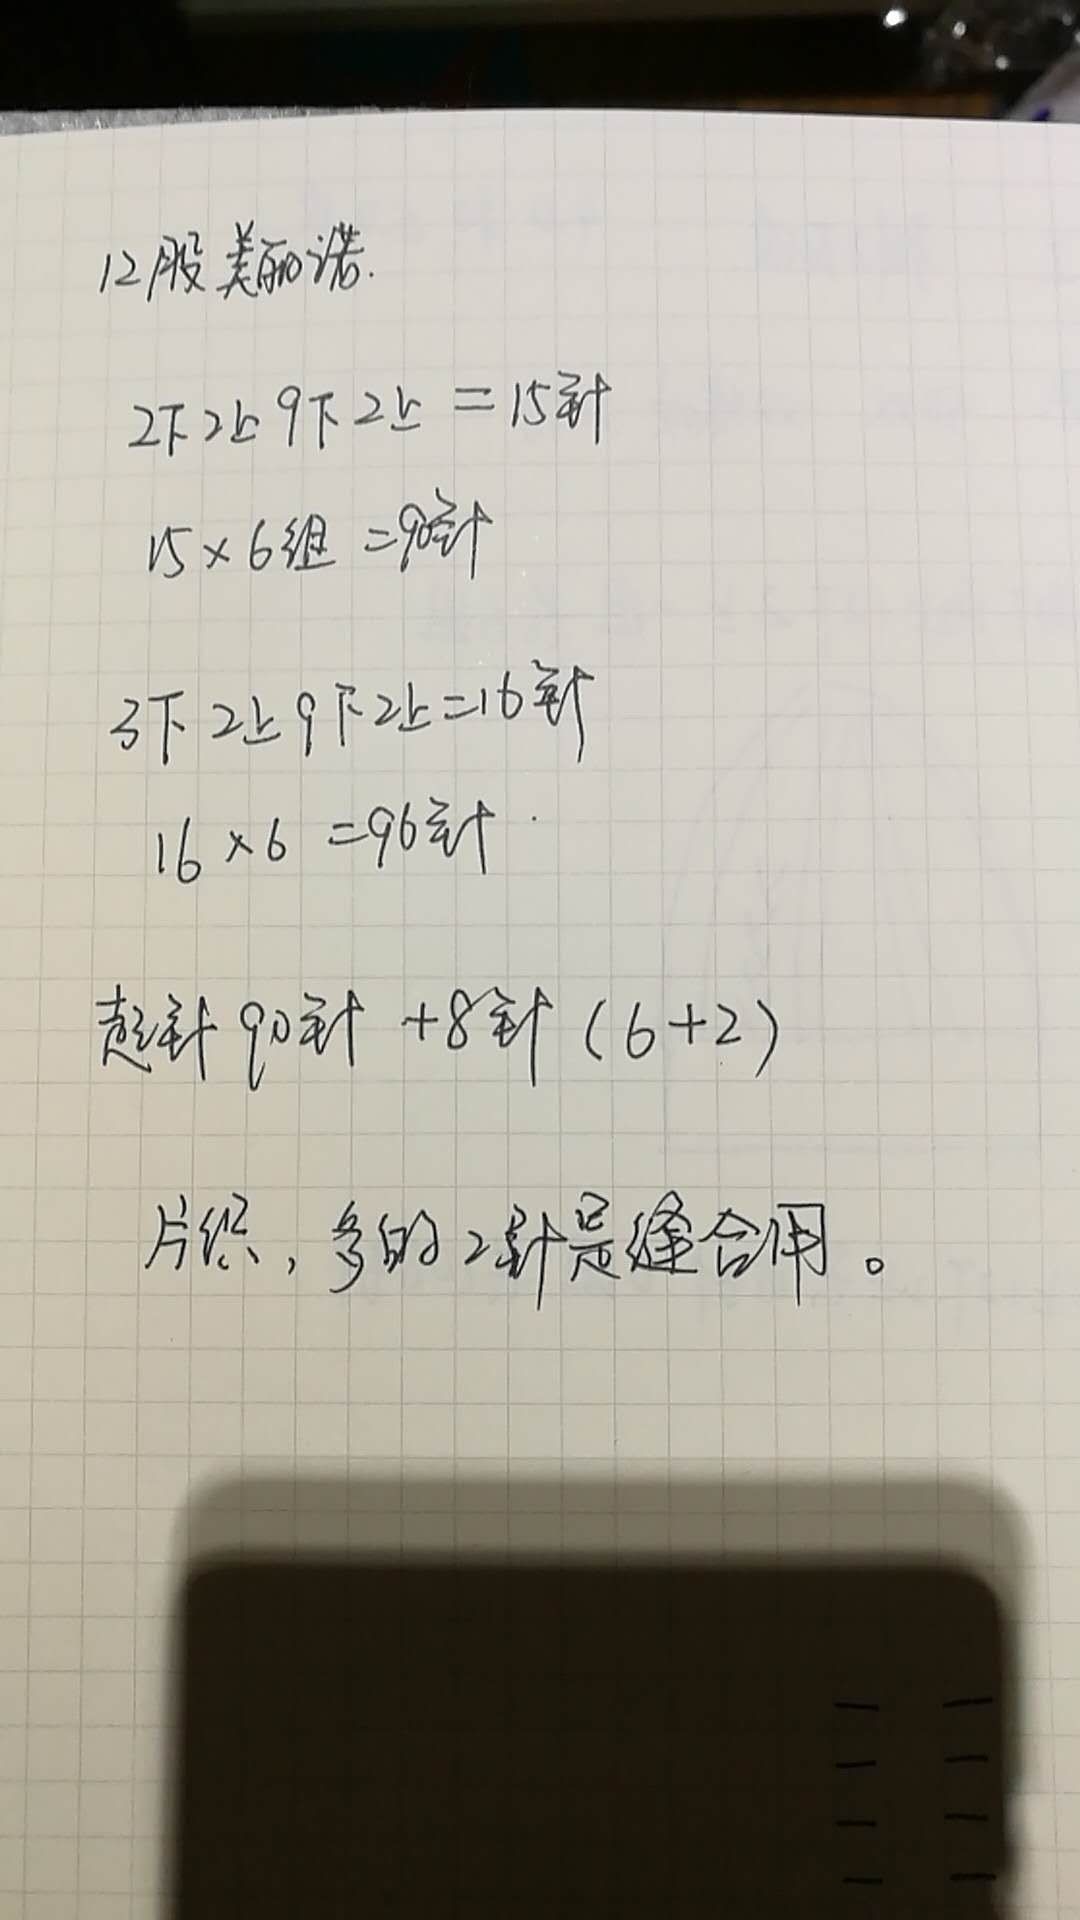 12股美丽诺.
2下2上9下2上=15针
15×6组=90针
3下2上9下2上=16针
16×6=96针
起针90针+8针(6+2)
片织,多的2针是缝合用。